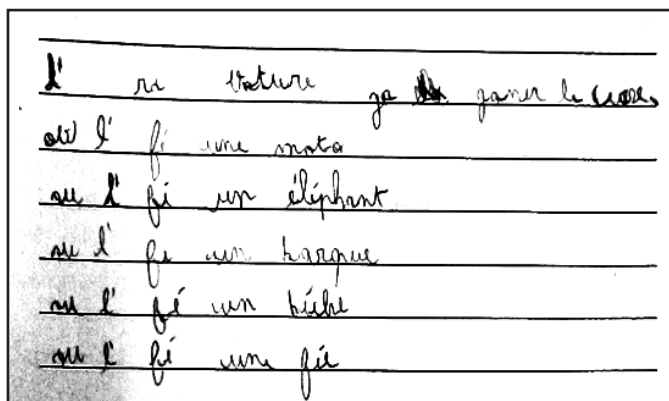 l' ri vature ga ganer le
ou l' fi une moto
ou l' fé un éléphant
ou l' fe un barque
ou l' fé un bébé
ou l' fé une fée